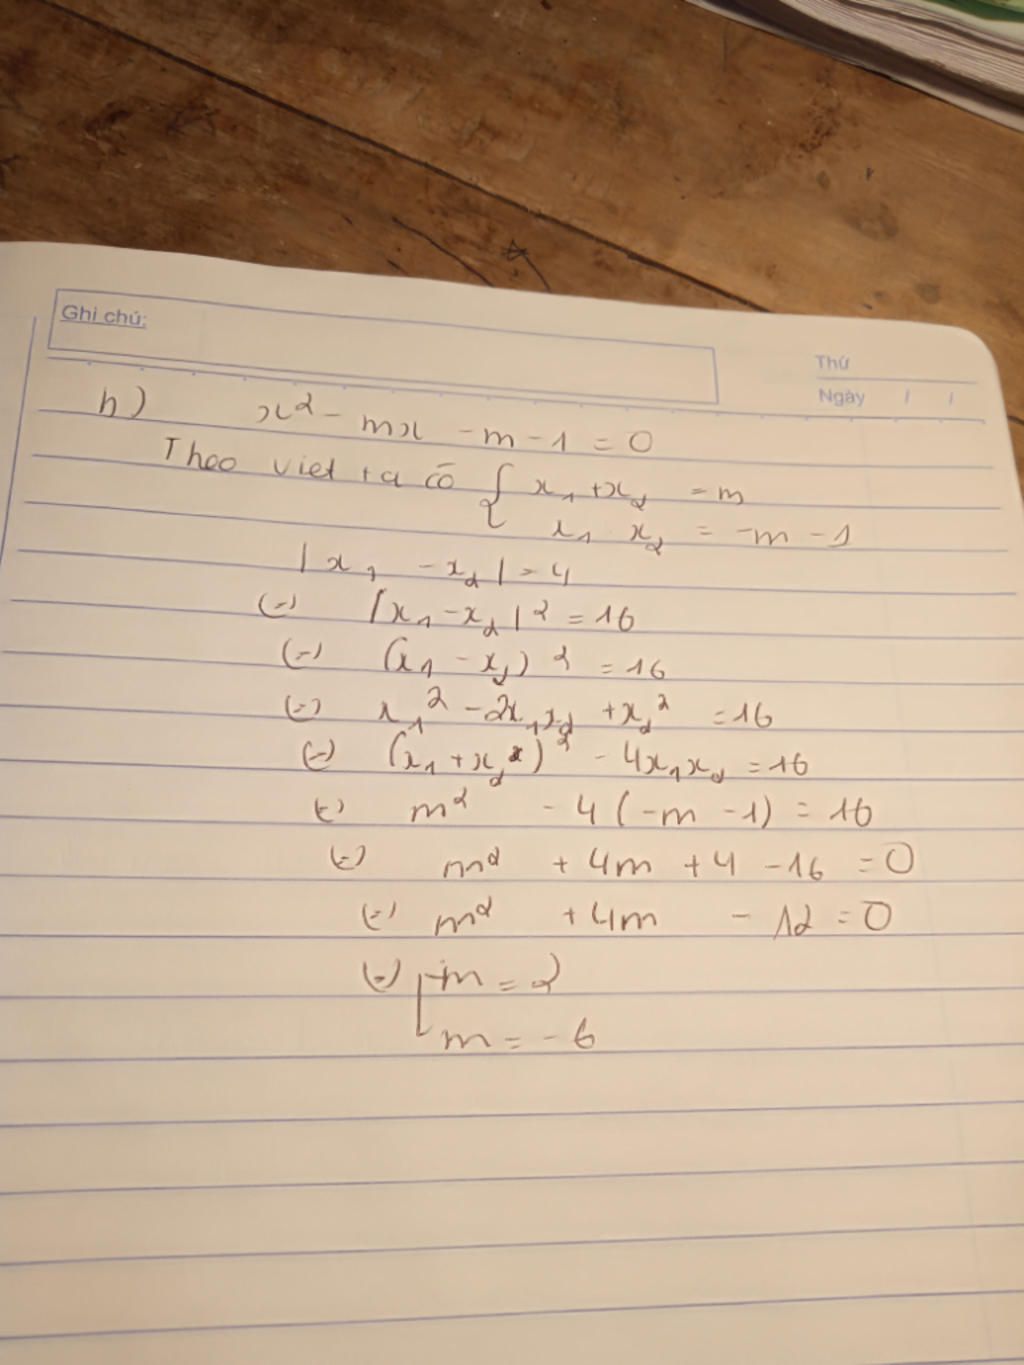 Ghi chú:
Thứ
Ngày / /
h) x² - mx - m - 1 = 0
Theo viet ta có { x₁ + x₂ = m
x₁ . x₂ = -m - 1
|x₁ - x₂| = 4
(=) |x₁ - x₂|² = 16
(=) (x₁ - x₂)² = 16
(=) x₁² - 2x₁x₂ + x₂² = 16
(=) (x₁ + x₂)² - 4x₁x₂ = 16
(=) m² - 4(-m - 1) = 16
(=) m² + 4m + 4 - 16 = 0
(=) m² + 4m - 12 = 0
(=) [ m = 2
m = -6